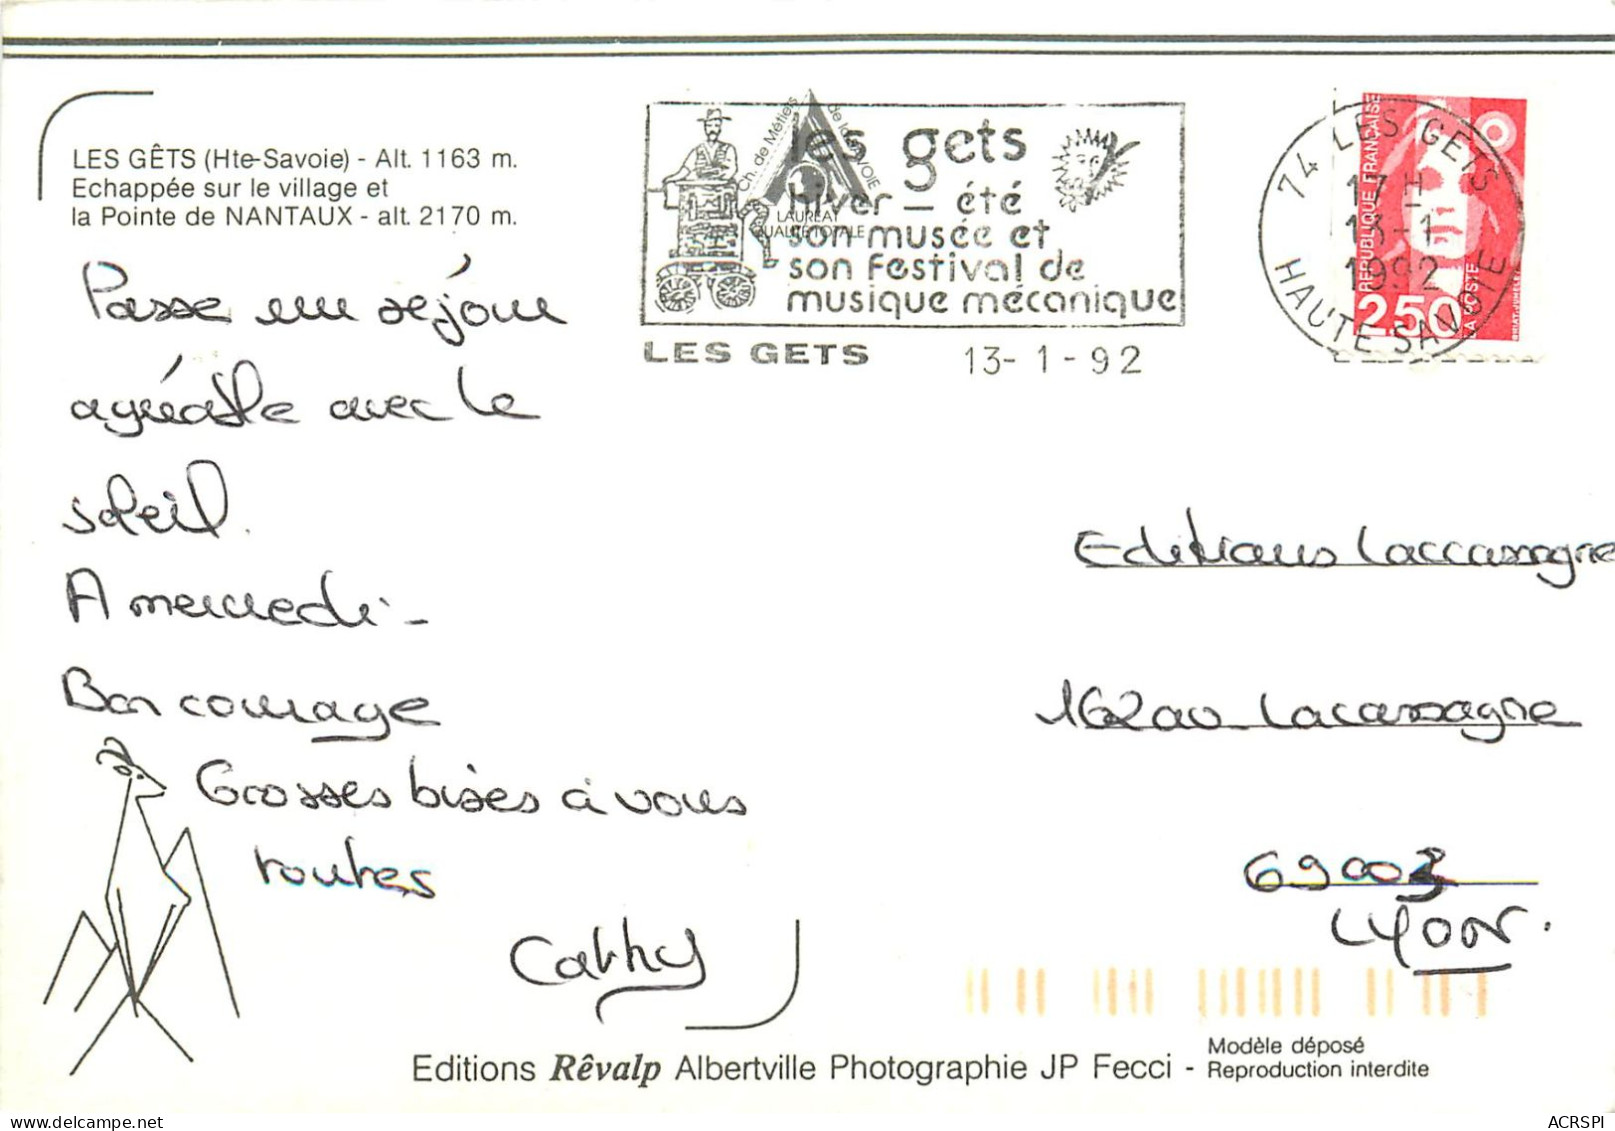 LES GÊTS (Hte-Savoie) - Alt. 1163 m.
Echappée sur le village et
la Pointe de NANTAUX - alt. 2170 m.
Passe un séjour
agréable avec le
soleil.
A mercredi -
Bon courage
Grosses bises à vous
toutes
Cathy
Ch. de Métiers de la SAVOIE
LAUREAT
QUALITE TOTALE
les gets
hiver - été
son musée et
son festival de
musique mécanique
LES GETS 13-1-92
74 LES GETS
17 H
13-1
1992
HAUTE SAVOIE
REPUBLIQUE FRANÇAISE
2,50
LA POSTE
Editions Laccassagne
162 av Lacassagne
69003
LYON.
Editions Rêvalp Albertville Photographie JP Fecci -
Modèle déposé
Reproduction interdite
ACRSPI